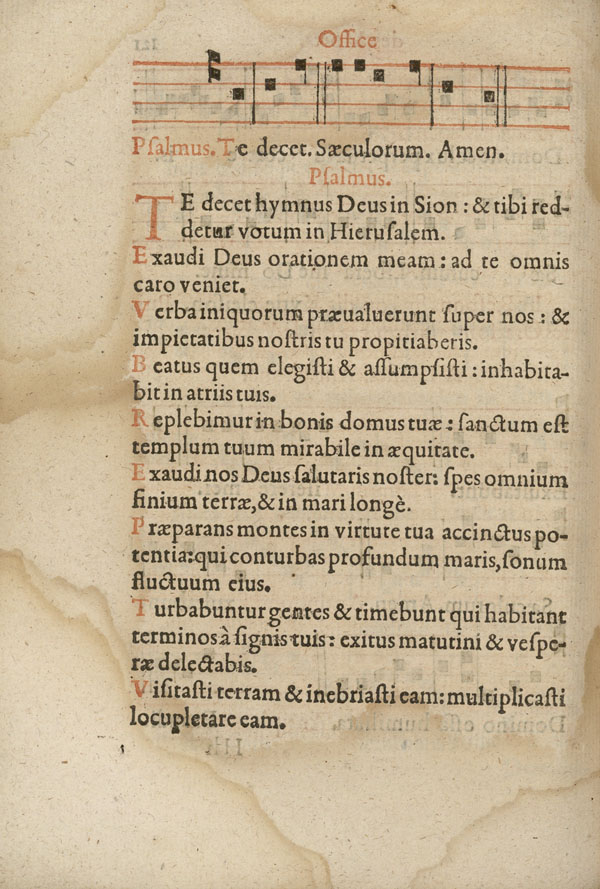 Office
Psalmus. Te decet. Sæculorum. Amen.
Psalmus.
TE decet hymnus Deus in Sion : & tibi red-
detur votum in Hierusalem.
Exaudi Deus orationem meam : ad te omnis
caro veniet.
Verba iniquorum præualuerunt super nos : &
impietatibus nostris tu propitiaberis.
Beatus quem elegisti & assumpsisti : inhabita-
bit in atriis tuis.
Replebimur in bonis domus tuæ : sanctum est
templum tuum mirabile in æquitate.
Exaudi nos Deus salutaris noster: spes omnium
finium terræ, & in mari longè.
Præparans montes in virtute tua accinctus po-
tentia: qui conturbas profundum maris, sonum
fluctuum eius.
Turbabuntur gentes & timebunt qui habitant
terminos à signis tuis : exitus matutini & vespe-
ræ delectabis.
Visitasti terram & inebriasti eam: multiplicasti
locupletare eam.